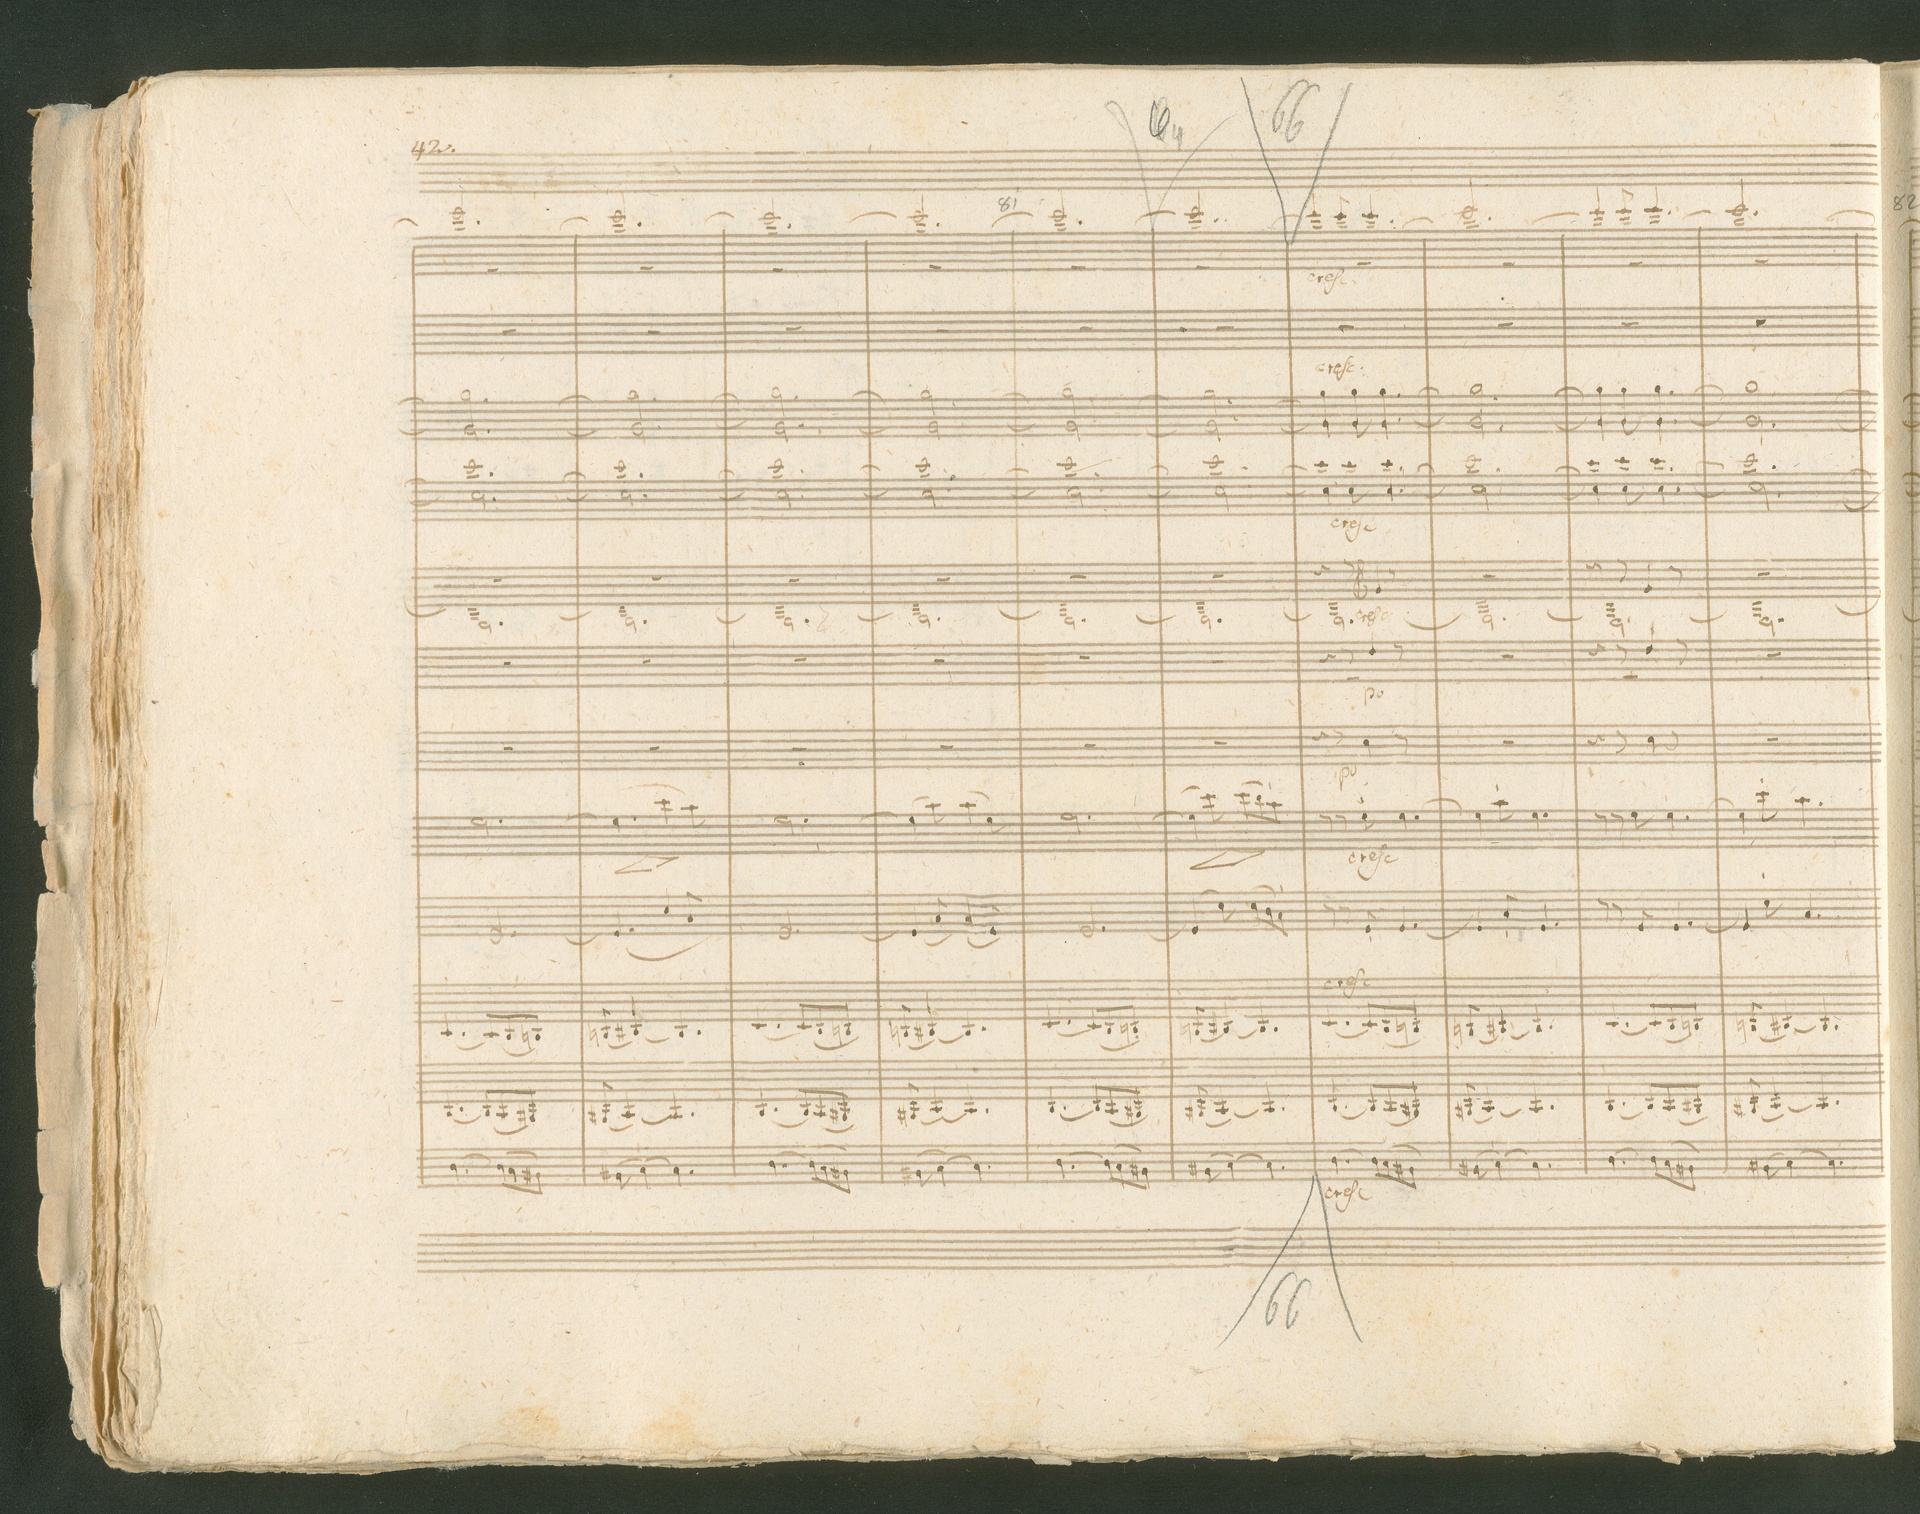 66
42.
81
82
cresc.
cresc.
cresc
cresc
po
po
cresc
cresc
cresc
66